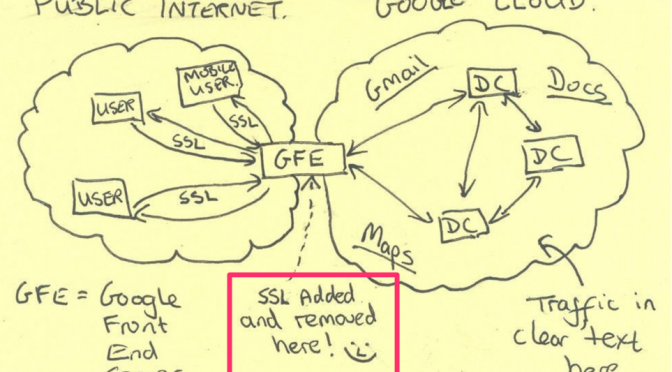 PUBLIC INTERNET.
GOOGLE CLOUD.
MOBILE
USER.
USER
SSL
SSL
USER
SSL
GFE
Gmail
DC
Docs
DC
DC
Maps
GFE = Google
Front
End
SSL Added
and removed
here!
Traffic in
clear text
here